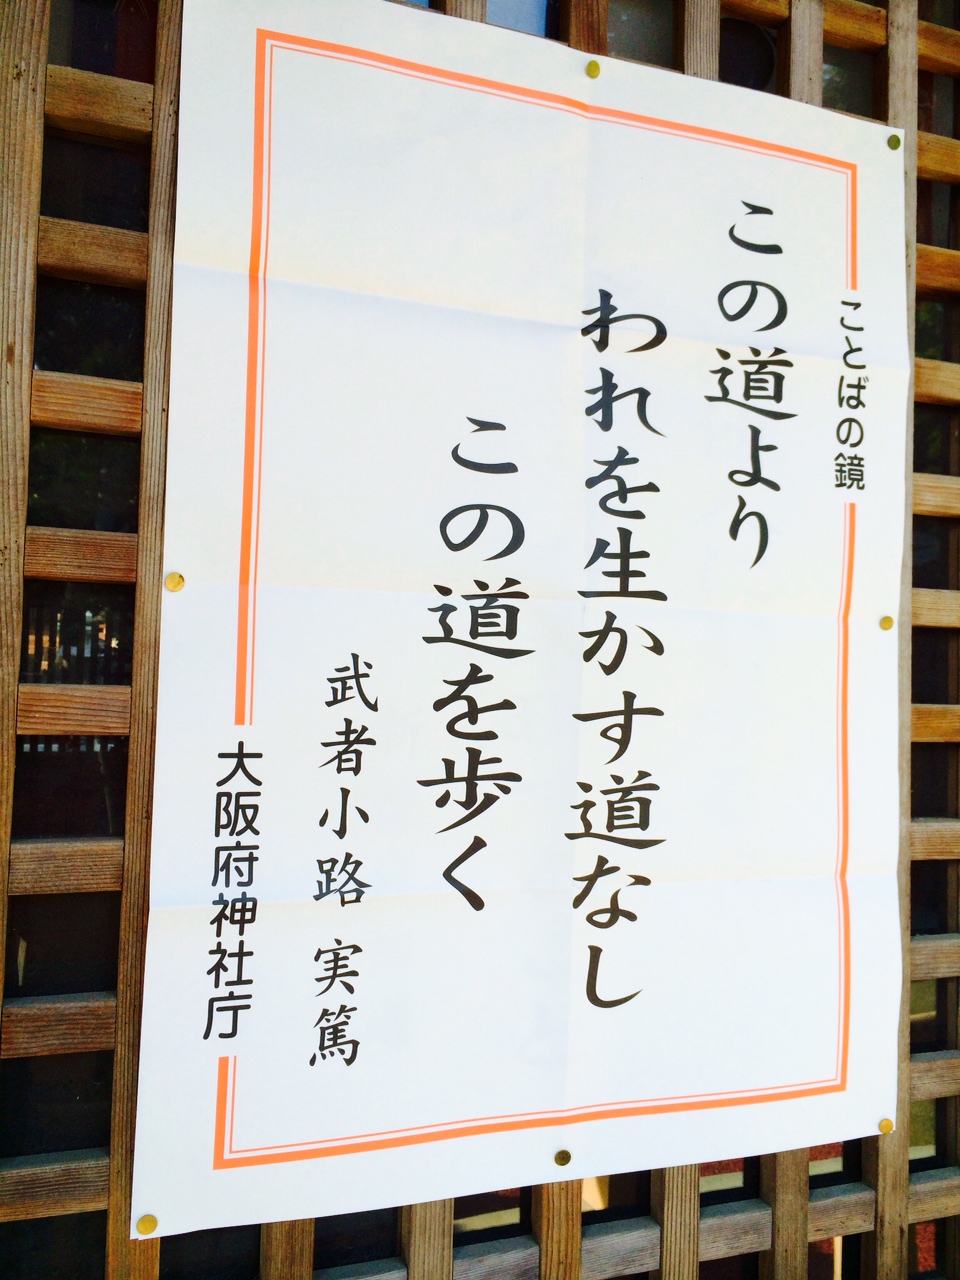 ことばの鏡
この道より
われを生かす道なし
この道を歩く
武者小路 実篤
大阪府神社庁